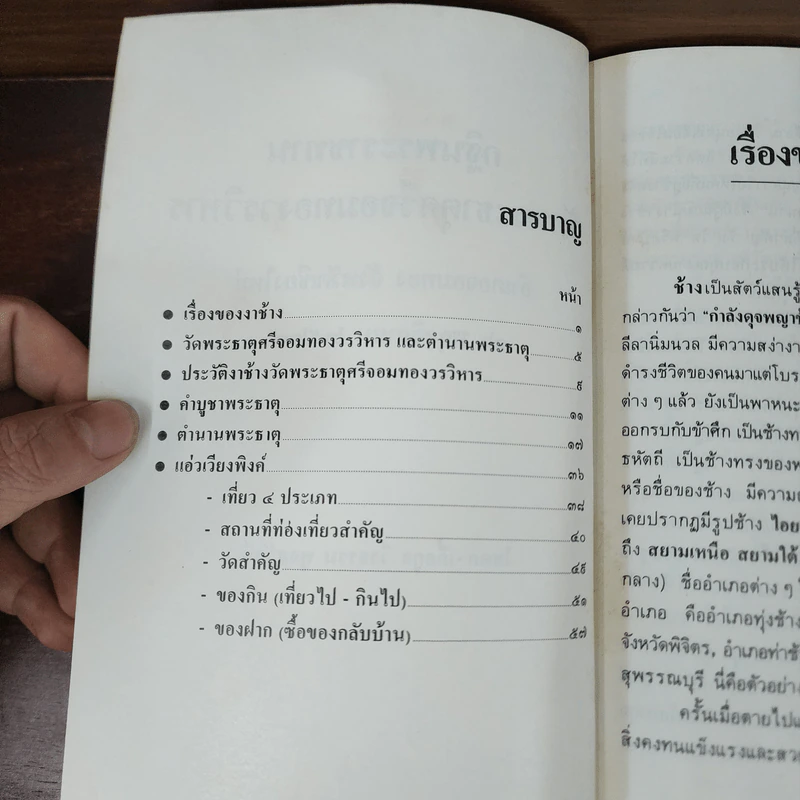 สารบาญ
หน้า
● เรื่องของงาช้าง ๑
● วัดพระธาตุศรีจอมทองวรวิหาร และตำนานพระธาตุ ๕
● ประวัติงาช้างวัดพระธาตุศรีจอมทองวรวิหาร ๙
● คำบูชาพระธาตุ ๑๑
● ตำนานพระธาตุ ๑๗
● แอ่วเวียงพิงค์ ๓๖
- เที่ยว ๔ ประเภท ๓๘
- สถานที่ท่องเที่ยวสำคัญ ๔๐
- วัดสำคัญ ๔๙
- ของกิน (เที่ยวไป - กินไป) ๕๑
- ของฝาก (ซื้อของกลับบ้าน) ๕๗
เรื่อง
ช้างเป็นสัตว์แสนรู้
กล่าวกันว่า "กำลังดุจพญา
ลีลานิ่มนวล มีความสง่างา
ดำรงชีวิตของคนมาแต่โบร
ต่าง ๆ แล้ว ยังเป็นพาหนะ
ออกรบกับข้าศึก เป็นช้างท
ธหัตถี เป็นช้างทรงของพ
หรือชื่อของช้าง มีความ
เคยปรากฏมีรูปช้าง ไอย
ถึง สยามเหนือ สยามใต้
กลาง) ชื่ออำเภอต่าง ๆ
อำเภอ คืออำเภอทุ่งช้าง
จังหวัดพิจิตร, อำเภอท่าช้
สุพรรณบุรี นี่คือตัวอย่าง
ครั้นเมื่อตายไปแ
สิ่งคงทนแข็งแรงและสว